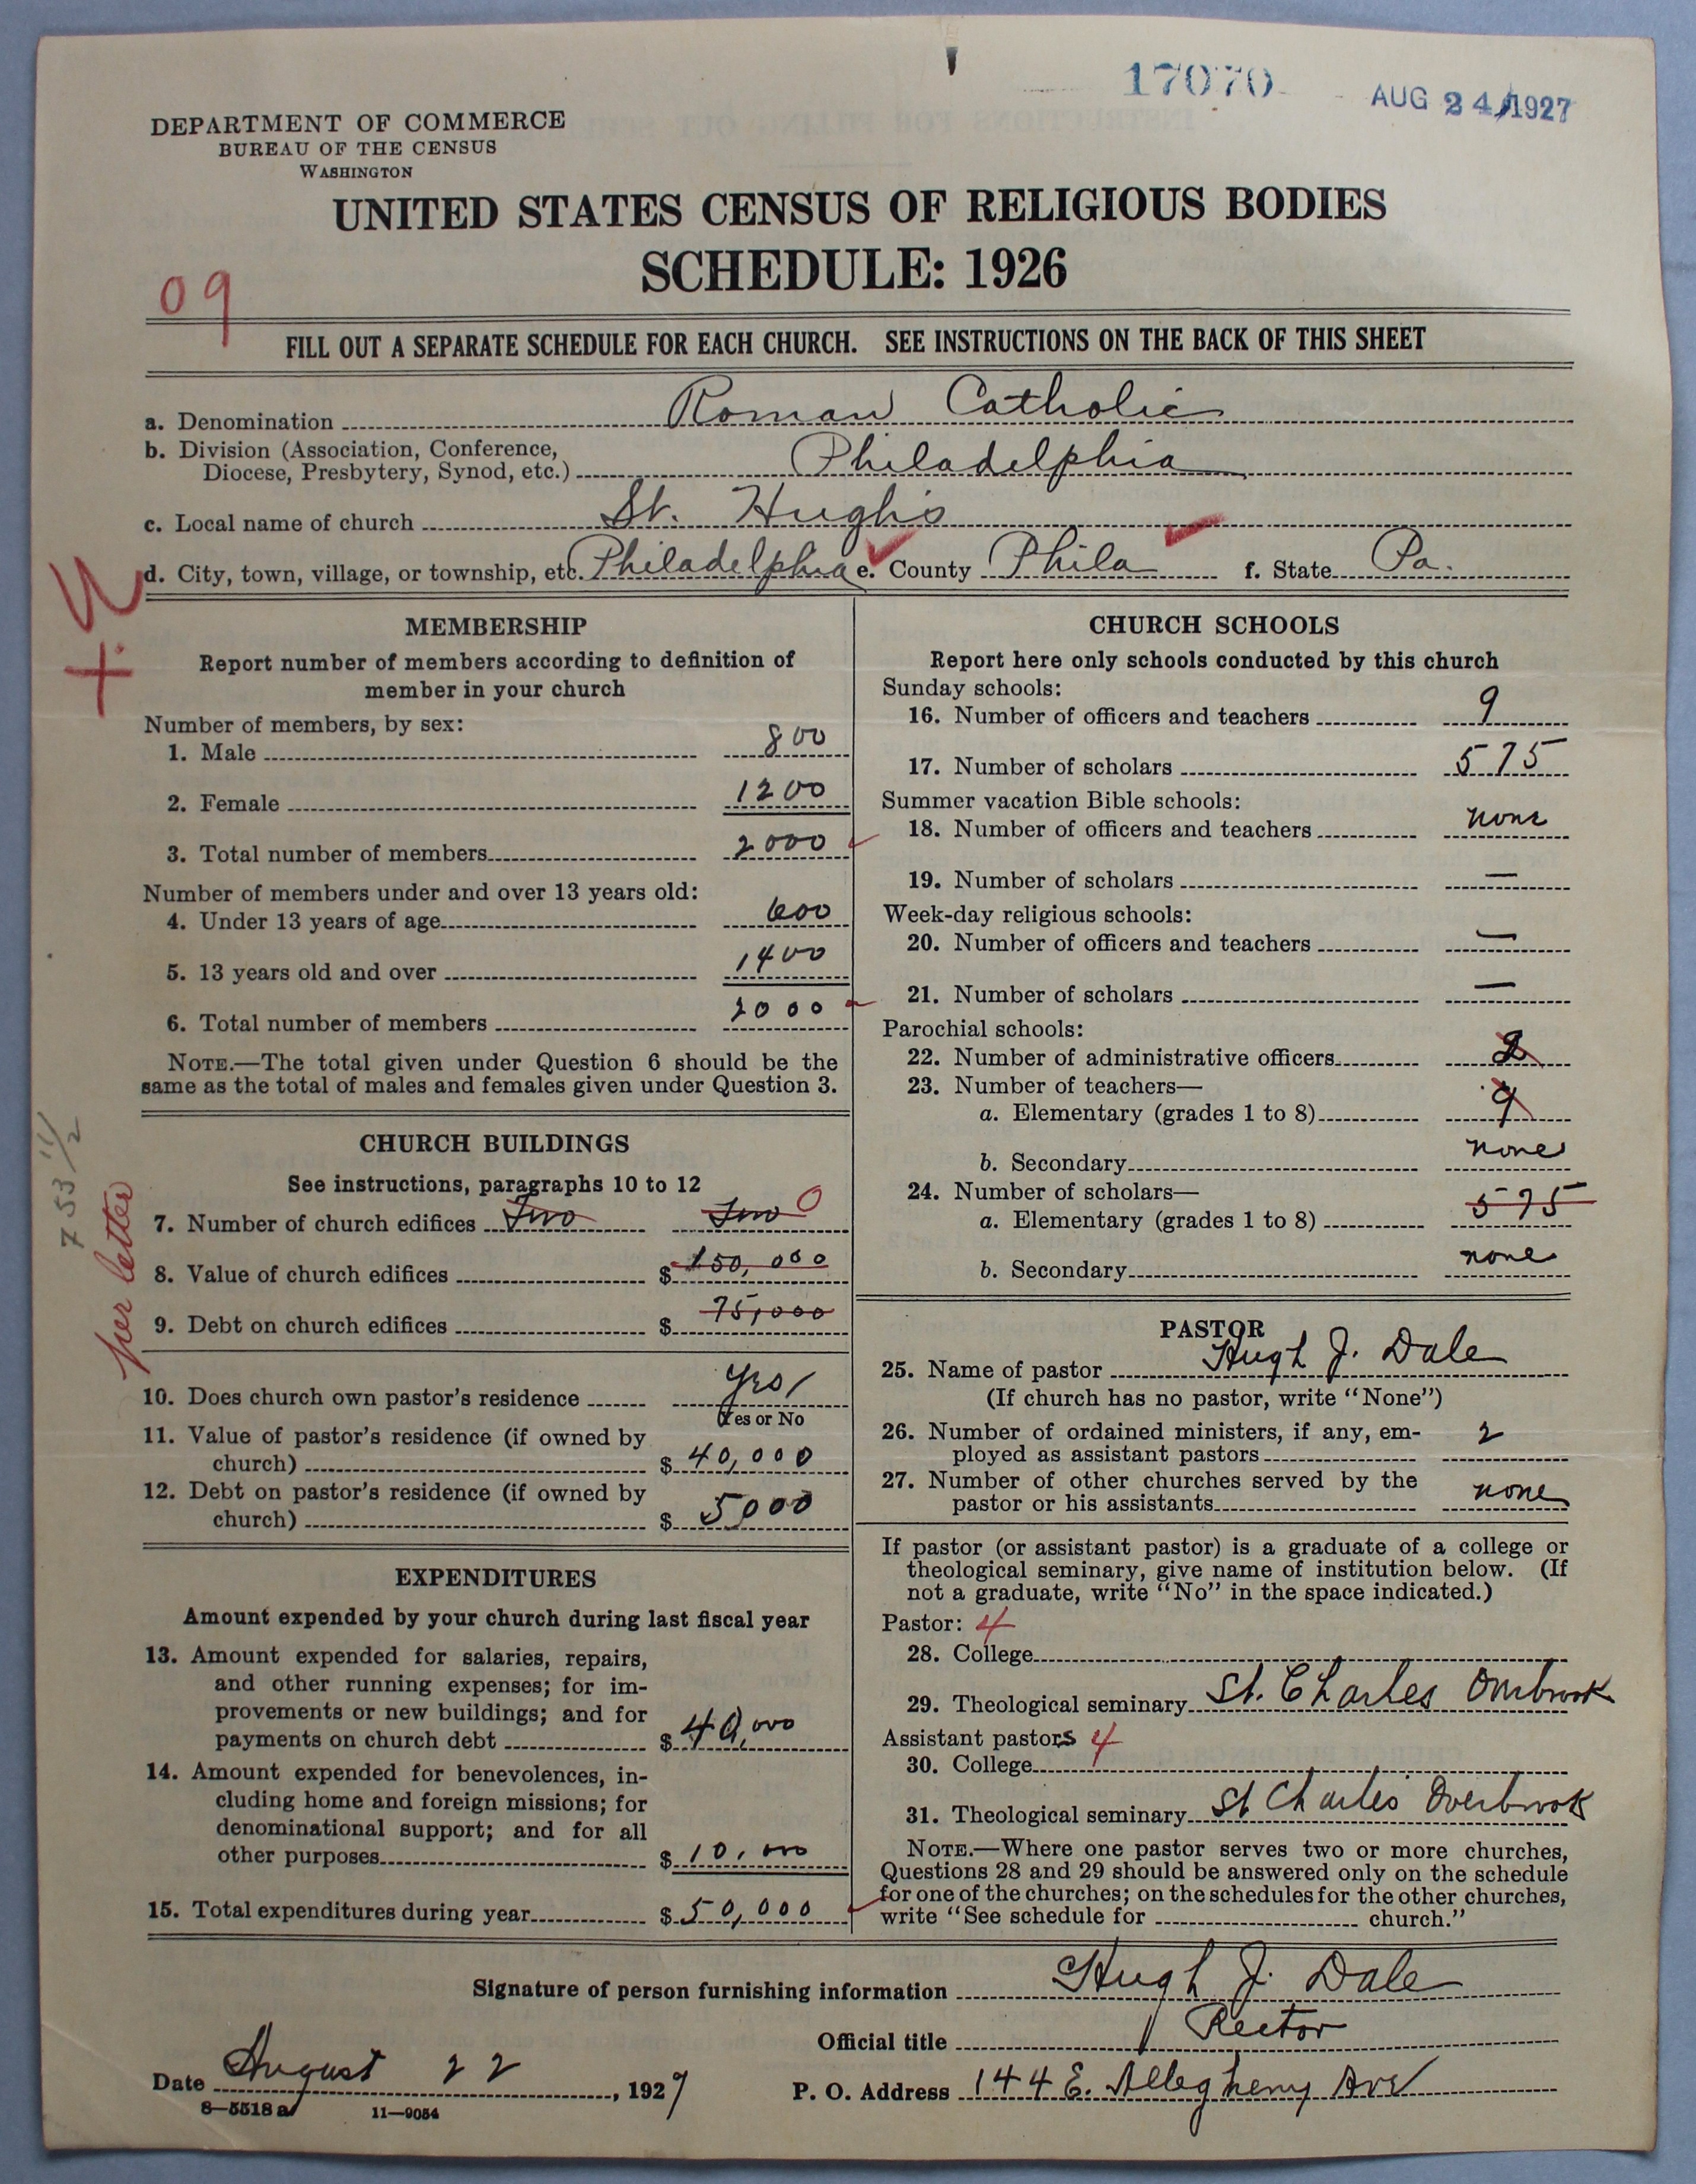 17070
AUG 24 1927
DEPARTMENT OF COMMERCE
BUREAU OF THE CENSUS
WASHINGTON
UNITED STATES CENSUS OF RELIGIOUS BODIES
SCHEDULE: 1926
09
FILL OUT A SEPARATE SCHEDULE FOR EACH CHURCH. SEE INSTRUCTIONS ON THE BACK OF THIS SHEET
a. Denomination Roman Catholic
b. Division (Association, Conference,
Diocese, Presbytery, Synod, etc.) Philadelphia
c. Local name of church St. Hugh's
d. City, town, village, or township, etc. Philadelphia e. County Phila f. State Pa.
MEMBERSHIP
Report number of members according to definition of
member in your church
Number of members, by sex:
1. Male 800
2. Female 1200
3. Total number of members 2000
Number of members under and over 13 years old:
4. Under 13 years of age 600
5. 13 years old and over 1400
6. Total number of members 2000
NOTE.—The total given under Question 6 should be the
same as the total of males and females given under Question 3.
CHURCH BUILDINGS
See instructions, paragraphs 10 to 12
7. Number of church edifices Two Two 0
8. Value of church edifices $ 150,000
9. Debt on church edifices $ 75,000
per letter
753 11/2
10. Does church own pastor's residence Yes
Yes or No
11. Value of pastor's residence (if owned by
church) $ 40,000
12. Debt on pastor's residence (if owned by
church) $ 5000
EXPENDITURES
Amount expended by your church during last fiscal year
13. Amount expended for salaries, repairs,
and other running expenses; for im-
provements or new buildings; and for
payments on church debt $ 40,000
14. Amount expended for benevolences, in-
cluding home and foreign missions; for
denominational support; and for all
other purposes $ 10,000
15. Total expenditures during year $ 50,000
CHURCH SCHOOLS
Report here only schools conducted by this church
Sunday schools:
16. Number of officers and teachers 9
17. Number of scholars 575
Summer vacation Bible schools:
18. Number of officers and teachers none
19. Number of scholars —
Week-day religious schools:
20. Number of officers and teachers —
21. Number of scholars —
Parochial schools:
22. Number of administrative officers 2
23. Number of teachers—
a. Elementary (grades 1 to 8) 9
b. Secondary none
24. Number of scholars—
a. Elementary (grades 1 to 8) 575
b. Secondary none
PASTOR
25. Name of pastor Hugh J. Dale
(If church has no pastor, write "None")
26. Number of ordained ministers, if any, em-
ployed as assistant pastors 2
27. Number of other churches served by the
pastor or his assistants none
If pastor (or assistant pastor) is a graduate of a college or
theological seminary, give name of institution below. (If
not a graduate, write "No" in the space indicated.)
Pastor: 4
28. College
29. Theological seminary St. Charles Overbrook
Assistant pastors 4
30. College
31. Theological seminary St Charles Overbrook
NOTE.—Where one pastor serves two or more churches,
Questions 28 and 29 should be answered only on the schedule
for one of the churches; on the schedules for the other churches,
write "See schedule for church."
Signature of person furnishing information Hugh J. Dale
Official title Rector
Date August 22, 1927
P. O. Address 144 E. Allegheny Ave
8—5518a 11—9054